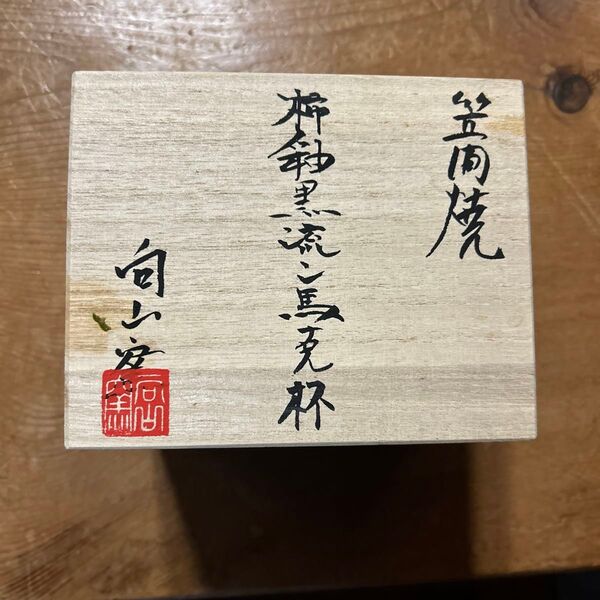 笠間焼
柿釉黒流し馬克杯
向山窯
向山窯